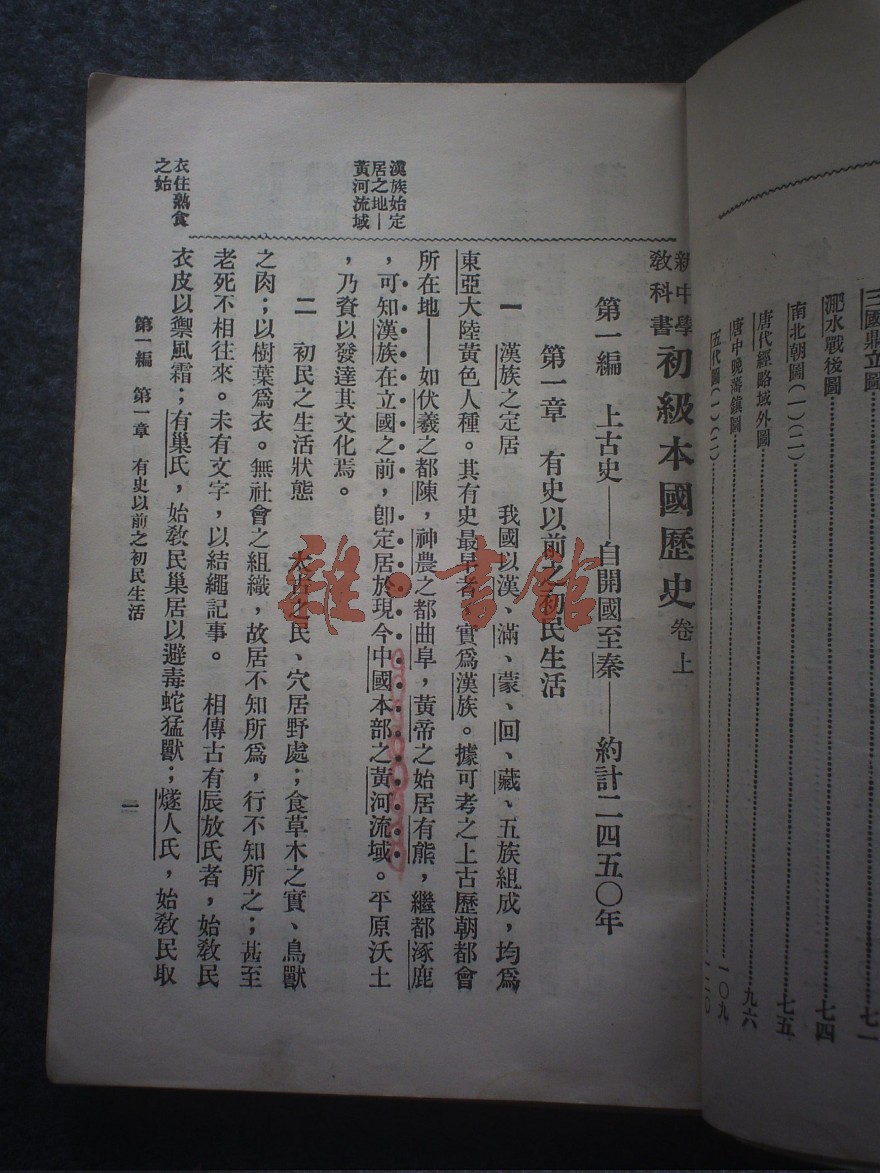 三國鼎立圖⋯⋯七一
淝水戰後圖⋯⋯七四
南北朝圖(一)(二)⋯⋯七五
唐代經略域外圖⋯⋯九六
唐中晚藩鎮圖⋯⋯一〇九
五代圖(一)(二)⋯⋯一二〇
新中學
教科書
初級本國歷史 卷上
第一編 上古史——自開國至秦——約計二四五〇年
第一章 有史以前之初民生活
一 漢族之定居 我國以漢、滿、蒙、回、藏、五族組成,均爲
東亞大陸黃色人種。其有史最早者,實爲漢族。據可考之上古歷朝都會
所在地——如伏羲之都陳,神農之都曲阜,黃帝之始居有熊,繼都涿鹿
,可知漢族在立國之前,卽定居於現今中國本部之黃河流域。平原沃土
,乃賚以發達其文化焉。
漢族始定
居之地—
黃河流域
二 初民之生活狀態 太古之民、穴居野處;食草木之實、鳥獸
之肉;以樹葉爲衣。無社會之組織,故居不知所爲,行不知所之;甚至
老死不相往來。未有文字,以結繩記事。 相傳古有辰放氏者,始敎民
衣皮以禦風霜;有巢氏,始敎民巢居以避毒蛇猛獸;燧人氏,始敎民取
衣住熟食
之始
第一編 第一章 有史以前之初民生活
一
雜·書館